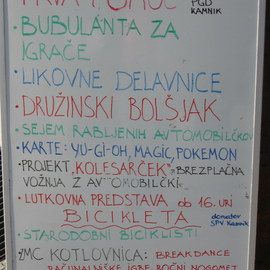 PRVA POMOČ PGD KAMNIK
• BUBULANTA ZA
IGRAČE
• LIKOVNE DELAVNICE
• DRUŽINSKI BOLŠJAK
• SEJEM RABLJENIH AVTOMOBILČKOV
• KARTE: YU-GI-OH, MAGIC, POKEMON
• PROJEKT "KOLESARČEK" - BREZPLAČNA
VOŽNJA Z AVTOMOBILČKI
• LUTKOVNA PREDSTAVA ob 16. uri
BICIKLETA donator
SPV Kamnik
• STARODOBNI BICIKLISTI
• MC KOTLOVNICA: BREAKDANCE
RAČUNALNIŠKE IGRE ROČNI NOGOMET